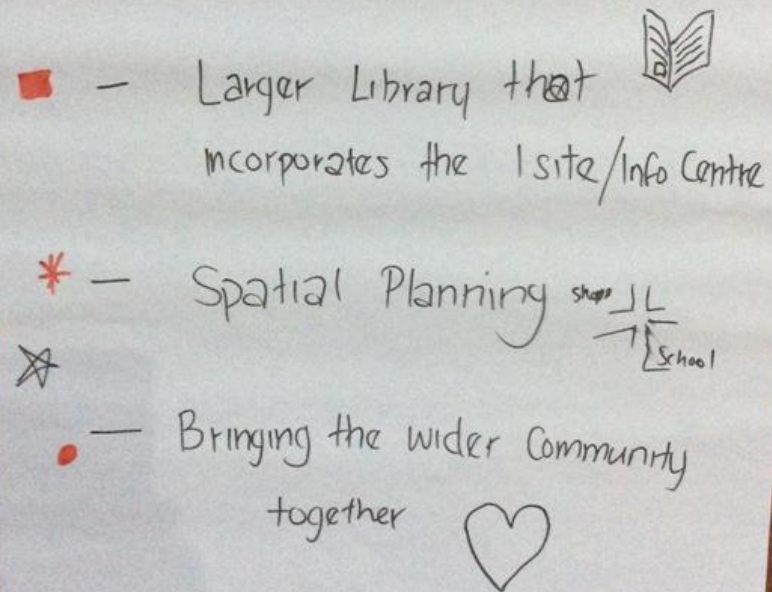 — Larger Library that
incorporates the I site/Info Centre
* — Spatial Planning shops
School
— Bringing the wider Community
together